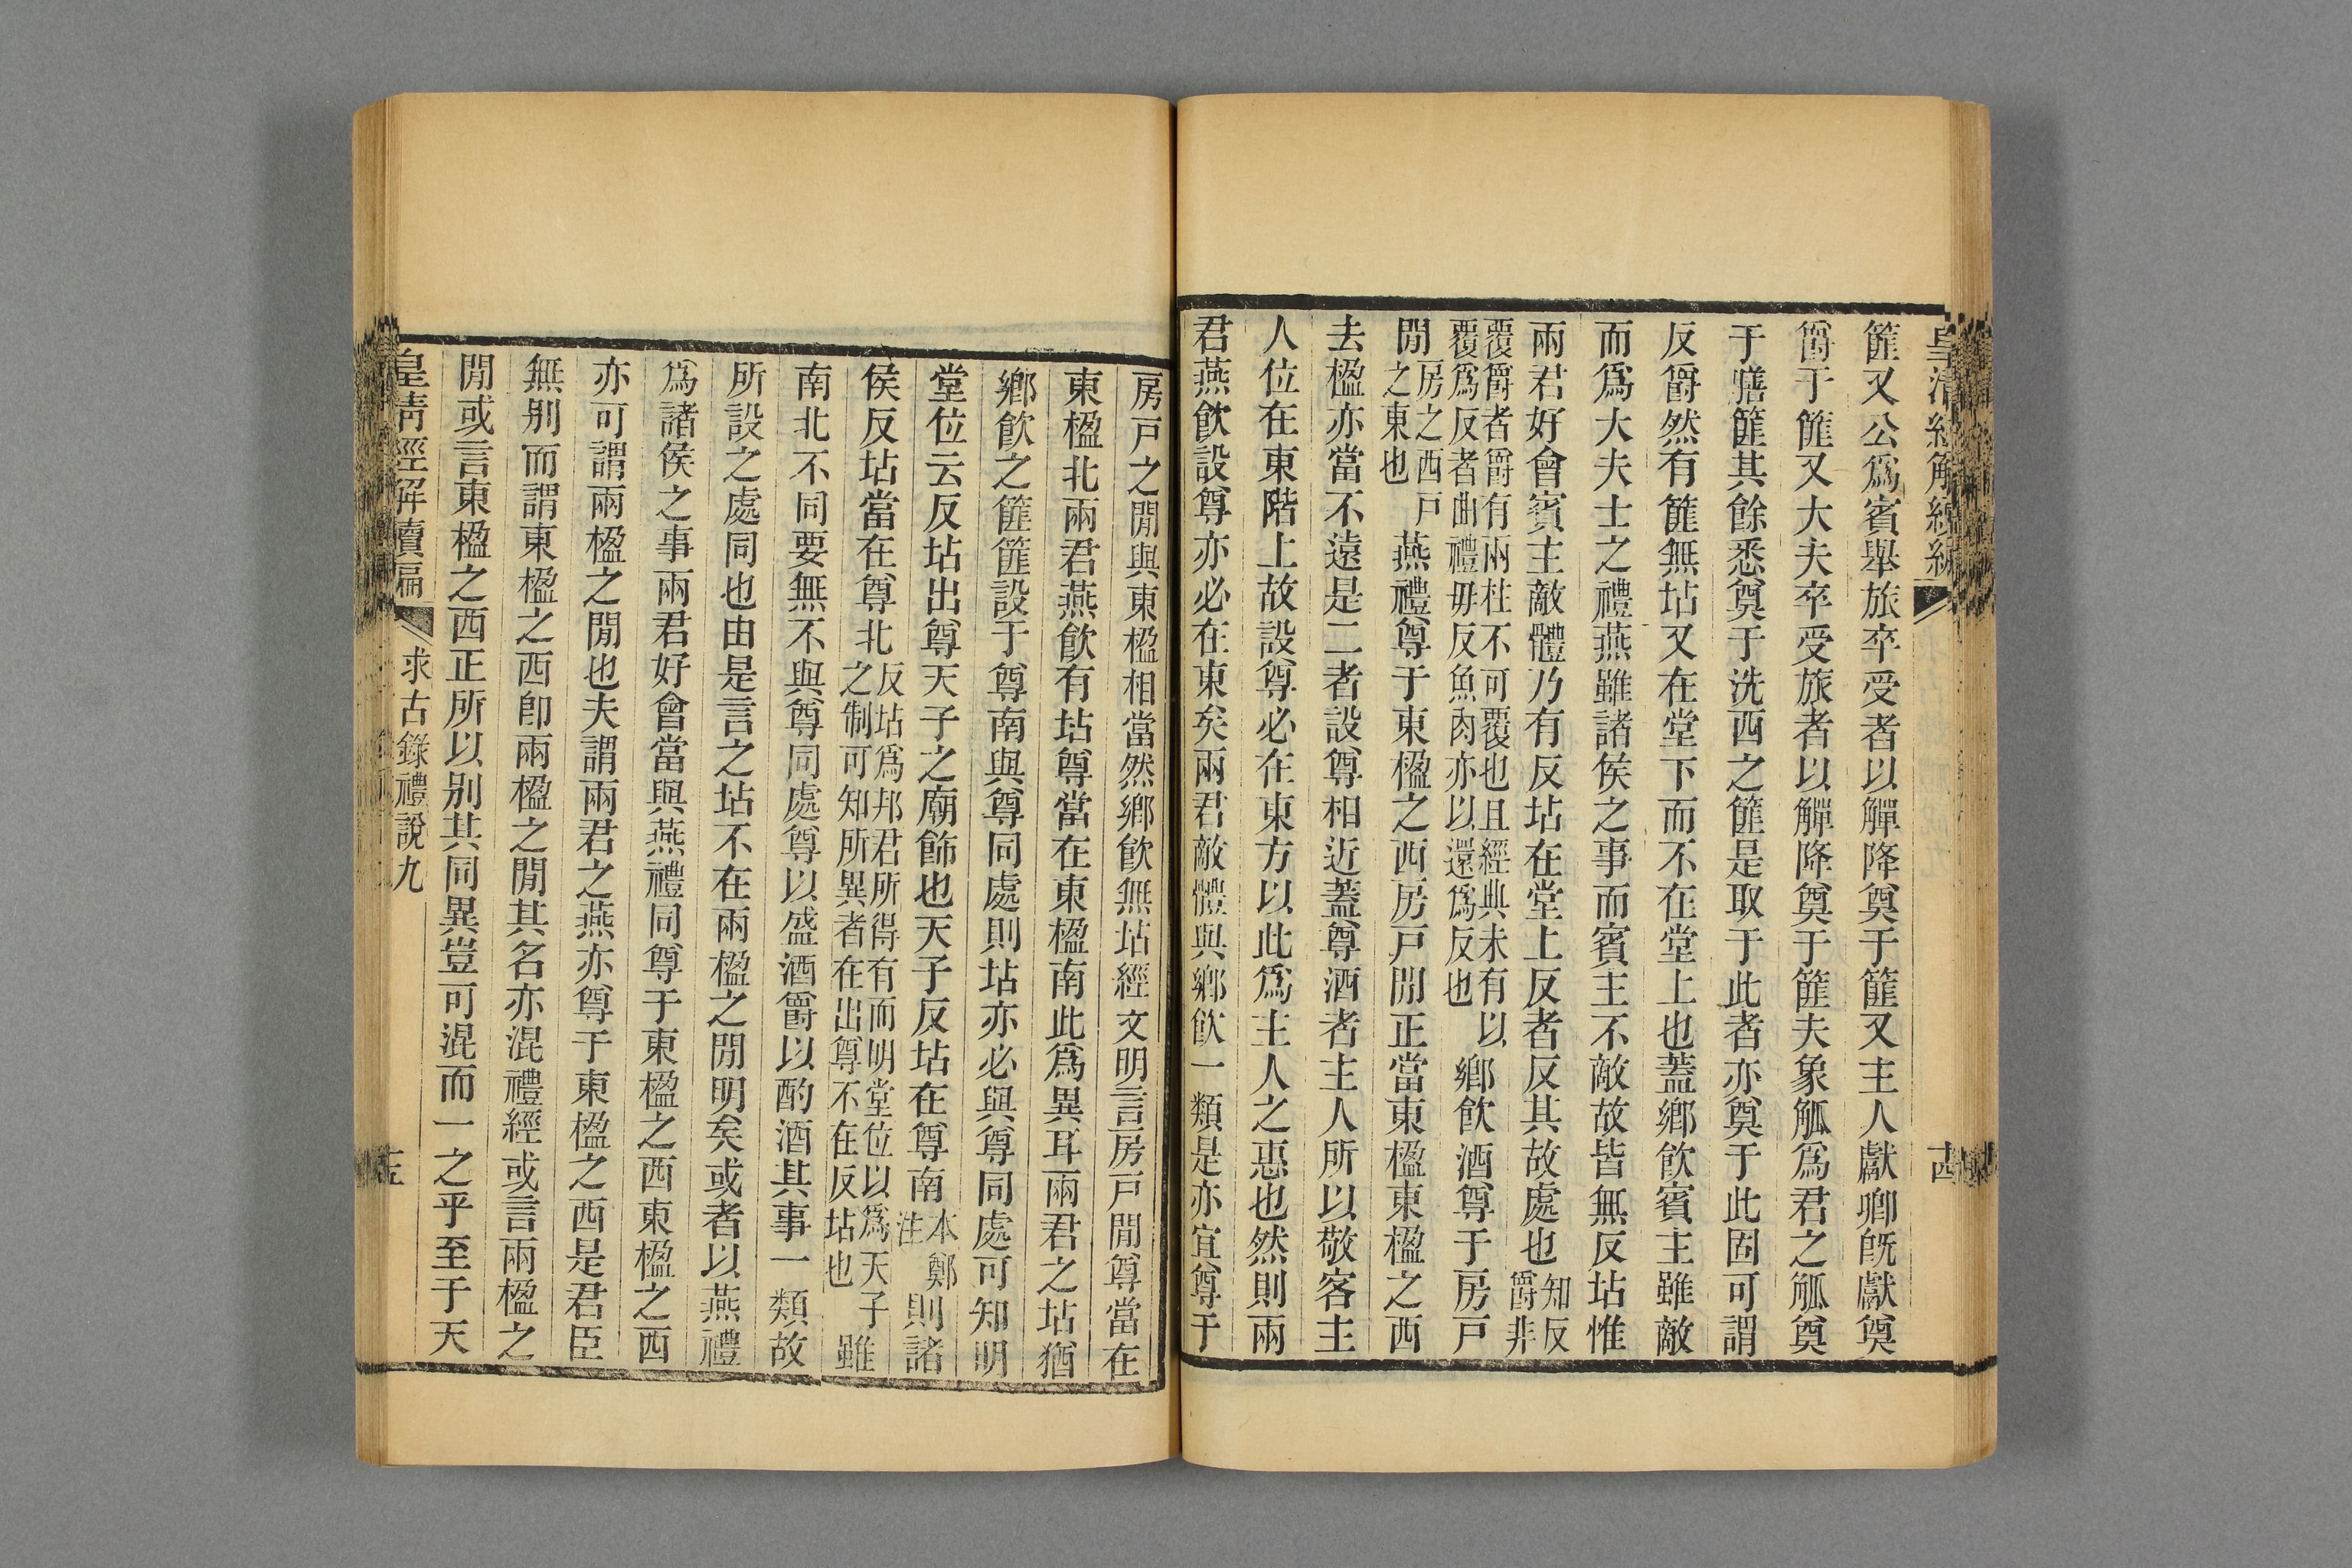 皇清經解續編
篚又公爲賓舉旅卒受者以觶降奠于篚又主人獻卿旣獻奠
爵于篚又大夫卒受旅者以觶降奠于篚夫象觚爲君之觚奠
于膳篚其餘悉奠于洗西之篚是取于此者亦奠于此固可謂
反爵然有篚無坫又在堂下而不在堂上也蓋鄉飮賓主雖敵
而爲大夫士之禮燕雖諸侯之事而賓主不敵故皆無反坫惟
兩君好會賓主敵體乃有反坫在堂上反者反其故處也知反爵非
覆爵者爵有兩柱不可覆也且經典未有以覆爲反者曲禮毋反魚肉亦以還爲反也鄉飮酒尊于房戸
閒房之西戸之東也燕禮尊于東楹之西房戸閒正當東楹東楹之西
去楹亦當不遠是二者設尊相近蓋尊酒者主人所以敬客主
人位在東階上故設尊必在東方以此爲主人之惠也然則兩
君燕飮設尊亦必在東矣兩君敵體與鄉飮一類是亦宜尊于
十四
房戸之閒與東楹相當然鄉飮無坫經文明言房戸閒尊當在
東楹北兩君燕飮有坫尊當在東楹南此爲異耳兩君之坫猶
鄉飮之篚篚設于尊南與尊同處則坫亦必與尊同處可知明
堂位云反坫出尊天子之廟飾也天子反坫在尊南本鄭注則諸
侯反坫當在尊北反坫爲邦君所得有而明堂位以爲天子之制可知所異者在出尊不在反坫也雖
南北不同要無不與尊同處尊以盛酒爵以酌酒其事一類故
所設之處同也由是言之坫不在兩楹之閒明矣或者以燕禮
爲諸侯之事兩君好會當與燕禮同尊于東楹之西東楹之西
亦可謂兩楹之閒也夫謂兩君之燕亦尊于東楹之西是君臣
無别而謂東楹之西卽兩楹之閒其名亦混禮經或言兩楹之
閒或言東楹之西正所以别其同異豈可混而一之乎至于天
皇清經解續編
求古錄禮說九
十五